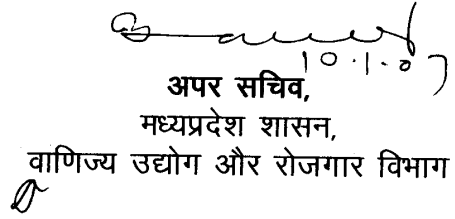 10.1.07
अपर सचिव,
मध्यप्रदेश शासन,
वाणिज्य उद्योग और रोजगार विभाग